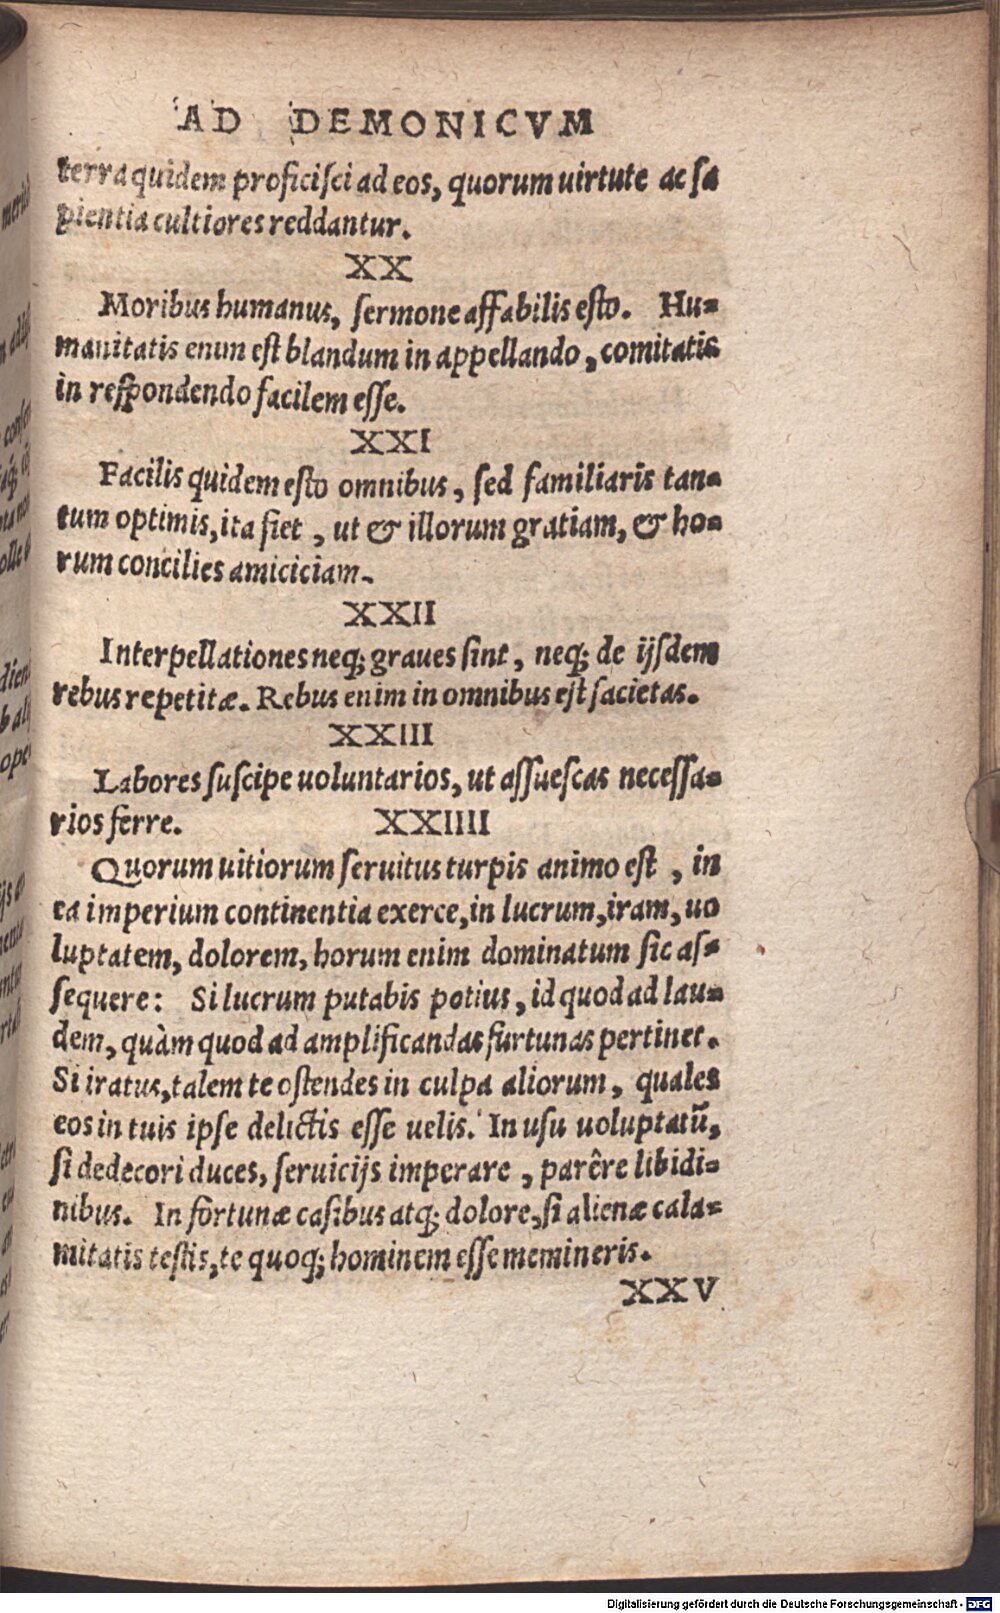 AD DEMONICVM
terra quidem proficisci ad eos, quorum uirtute ac sa
pientia cultiores reddantur.
XX
Moribus humanus, sermone affabilis esto. Hu-
manitatis enim est blandum in appellando, comitatis
in respondendo facilem esse.
XXI
Facilis quidem esto omnibus, sed familiaris tan-
tum optimis, ita fiet, ut & illorum gratiam, & ho-
rum concilies amiciciam.
XXII
Interpellationes neq; graues sint, neq; de ijsdem
rebus repetitæ. Rebus enim in omnibus est sacietas.
XXIII
Labores suscipe uoluntarios, ut assuescas necessa-
rios ferre. XXIIII
Quorum uitiorum seruitus turpis animo est, in
ea imperium continentia exerce, in lucrum, iram, uo
luptatem, dolorem, horum enim dominatum sic as-
sequere: Si lucrum putabis potius, id quod ad lau-
dem, quàm quod ad amplificandas furtunas pertinet.
Si iratus, talem te ostendes in culpa aliorum, quales
eos in tuis ipse delictis esse uelis. In usu uoluptatū,
si dedecori duces, seruicijs imperare, parêre libidi-
nibus. In fortunæ casibus atq; dolore, si alienæ cala-
mitatis testis, te quoq; hominem esse memineris.
XXV
Digitalisierung gefördert durch die Deutsche Forschungsgemeinschaft - DFG